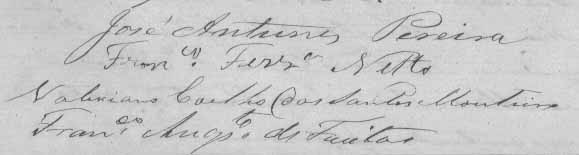 José Antunes Pereira
Fran.co Ferr.a Netto
Valeriano Coelho dos Santos Monteiro
Fran.co Aug.to de Freitas